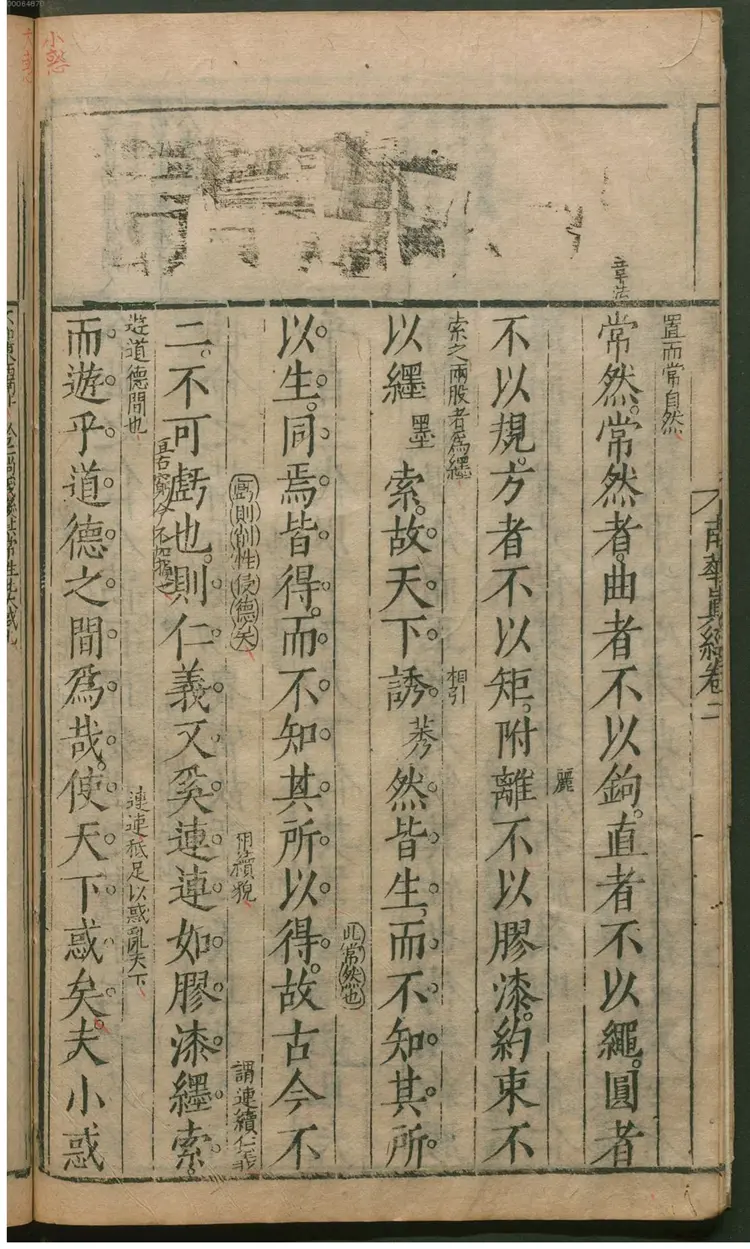 00064870
小惑
南華真經卷二
章法
置而常自然
常然常然者曲者不以鉤直者不以繩圓者
麗
不以規方者不以矩附離不以膠漆約束不
索之兩股者為纆
相引
以纆墨索故天下誘莠然皆生而不知其所
此常然也
以生同焉皆得而不知其所以得故古今不
虧則削性侵德矣
用續貌
謂連續仁義
二不可虧也則仁義又奚連連如膠漆纆索
遊道德間也
連連秖足以惑亂天下
而遊乎道德之間為哉使天下惑矣夫小惑